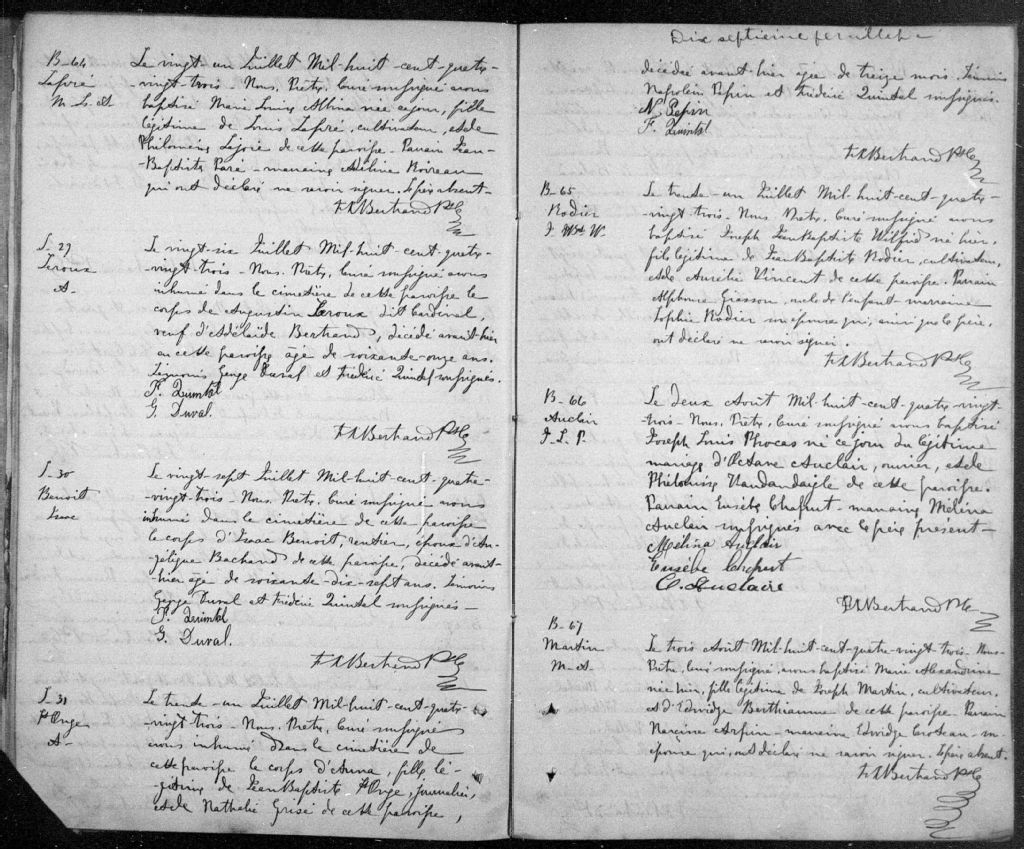 B-64
Laforé
M. L. A.
Le vingt un Juillet Mil-huit-cent-quatre-
vingt-trois. Nous, Prêtre, Curé soussigné avons
baptisé Marie Louise Albina née ce jour, fille
légitime de Louis Laforé, cultivateur, et de
Philomène Lajoie de cette paroisse. Parrain Jean-
-Baptiste Paré - marraine Adéline Boireau
qui ont déclaré ne savoir signer. Le père absent-
F.X. Bertrand Ptre C.
S-29
Leroux
A-
Le vingt-six Juillet Mil-huit-cent-quatre-
vingt-trois - Nous, Prêtre, Curé soussigné avons
inhumé dans le cimetière de cette paroisse le
corps de Augustin Leroux dit Cardinal
veuf d'Adélaïde Bertrand, décédé avant-hier
en cette paroisse âgé de soixante-onze ans.
Témoins George Duval et Frédéric Quintal soussignés.
F. Quintal
G. Duval.
F.X. Bertrand Ptre C.
S-30
Benoit
Isaac
Le vingt sept Juillet Mil-huit-cent-quatre-
-vingt-trois - Nous, Prêtre, Curé soussigné avons
inhumé dans le cimetière de cette paroisse
le corps d'Isaac Benoit, rentier, époux d'An-
gélique Bachand de cette paroisse, décédé avant-
-hier âgé de soixante-dix-sept ans. Témoins
George Duval et Frédéric Quintal soussignés-
F. Quintal
G. Duval.
F.X. Bertrand Ptre C.
S-31
St Onge
A-
Le trente-un Juillet Mil-huit-cent-quatre-
vingt-trois - Nous, Prêtre, Curé soussigné
avons inhumé dans le cimetière de
cette paroisse le corps d'Anna, fille lé-
gitime de Jean Baptiste St Onge, journalier,
et de Nathalie Grisé de cette paroisse,
Dix septième feuillet-
décédée avant-hier âgée de treize mois. Témoins
Napoléon Pepin et Frédéric Quintal soussignés.
N. Pepin
F. Quintal
F.X. Bertrand Ptre C.
B-65
Rodier
J. Bte W.
Le trente-un Juillet Mil-huit-cent-quatre-
vingt-trois. Nous, Prêtre, Curé soussigné avons
baptisé Joseph Jean Baptiste Wilfrid né hier,
fils légitime de Jean Baptiste Rodier, cultivateur,
et de Aurélie Vincent de cette paroisse. Parrain
Alphonse Giasson, oncle de l'enfant - marraine
Sophie Rodier son épouse qui, ainsi que le père,
ont déclaré ne savoir signer.
F.X. Bertrand Ptre C.
B-66
Auclair
J. L. P.
Le deux Août Mil-huit-cent-quatre-vingt-
trois - Nous, Prêtre, Curé soussigné avons baptisé
Joseph Louis Phocas né ce jour du légitime
mariage d'Octave Auclair, ouvrier, et de
Philomène Vandandaigle de cette paroisse.
Parrain Eusèbe Chaput - marraine Mélina
Auclair soussignés avec le père présent-
Mélina Auclair
Eusèbe Chaput
O. Auclaire
F.X. Bertrand Ptre C.
B-67
Martin
M-A
Le trois Août Mil-huit-cent-quatre-vingt-trois. Nous
Prêtre, Curé soussigné, avons baptisé Marie Alexandrine
née hier, fille légitime de Joseph Martin, cultivateur,
et d'Edwidge Berthiaume de cette paroisse. Parrain
Narcisse Arpin - marraine Edwidge Croteau - son
épouse qui, ont déclaré ne savoir signer. Le père absent.
F.X. Bertrand Ptre C.